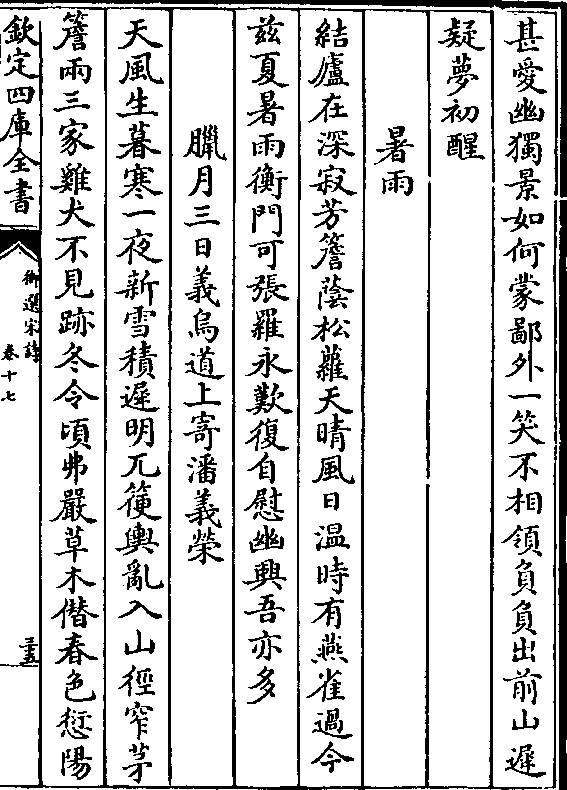 甚愛幽獨景如何蒙鄙外一笑不相領負負出前山遲
疑夢初醒
暑雨
結廬在深寂芳簷蔭松蘿天晴風日温時有燕雀過今
兹夏暑雨衡門可張羅永歎復自慰幽興吾亦多
臘月三日義烏道上寄潘義榮
天風生暮寒一夜新雪積遲明兀箯輿亂入山徑窄茅
簷雨三家雞犬不見跡冬令頃弗嚴草木僣春色愆陽
欽定四庫全書
御選宋詩
卷十七
三五